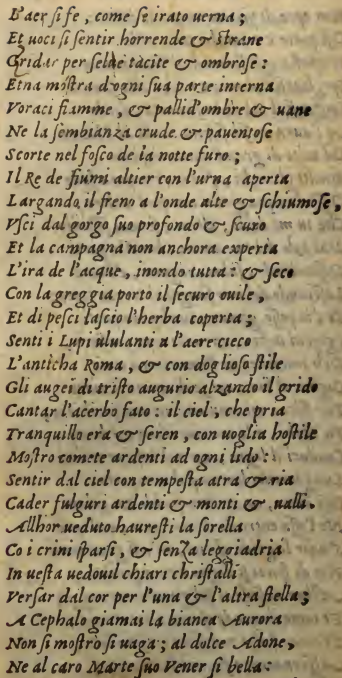 L'aer si fe, come se irato uerna;
Et uoci si sentir horrende & strane
Gridar per selue tacite & ombrose:
Etna mostra d'ogni sua parte interna
Voraci fiamme, & pallid'ombre & uane
Ne la sembianza crude & pauentose
Scorte nel fosco de la notte furo;
Il Re de fiumi altier con l'urna aperta
Largando il freno a l'onde alte & schiumose,
Vsci dal gorgo suo profondo & scuro
Et la campagna non anchora experta
L'ira de l'acque, inondo tutta: & seco
Con la greggia porto il securo ouile,
Et di pesci lascio l'herba coperta;
Senti i Lupi ululanti a l'aere cieco
L'anticha Roma, & con doglioso stile
Gli augei di tristo augurio alzando il grido
Cantar l'acerbo fato: il ciel, che pria
Tranquillo era & seren, con uoglia hostile
Mostro comete ardenti ad ogni lido:
Sentir dal ciel con tempesta atra & ria
Cader fulguri ardenti & monti & ualli.
Allhor ueduto hauresti la sorella
Co i crini sparsi, & senza leggiadria
In uesta uedouil chiari christalli
Versar dal cor per l'una & l'altra stella;
A Cephalo giamai la bianca Aurora
Non si mostro si uaga; al dolce Adone,
Ne al caro Marte suo Vener si bella: